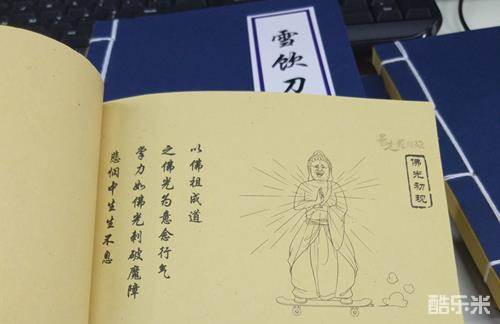 雪饮刀
佛光初现
以佛祖成道
之佛光为意念行气
掌力如佛光刺破魔障
悲悯中生生不息
酷乐米